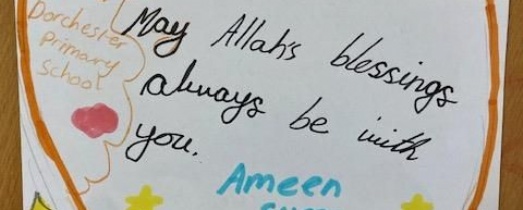 Dorchester
Primary
School
May Allah's blessings
always be with
you.
Ameen